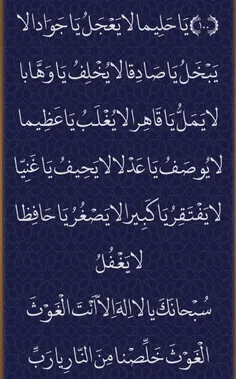 ﴿١٠٠﴾ يَا حَلِيما لا يَعْجَلُ يَا جَوَادا لا
يَبْخَلُ يَا صَادِقا لا يُخْلِفُ يَا وَهَّابا
لا يَمَلُّ يَا قَاهِرا لا يُغْلَبُ يَا عَظِيما
لا يُوصَفُ يَا عَدْلا لا يَحِيفُ يَا غَنِيّا
لا يَفْتَقِرُ يَا كَبِيرا لا يَصْغُرُ يَا حَافِظا
لا يَغْفُلُ
سُبْحَانَكَ يَا لا إِلهَ إِلاّ أَنْتَ الْغَوْثَ
الْغَوْثَ خَلِّصْنا مِنَ النَّارِ يَا رَبِّ